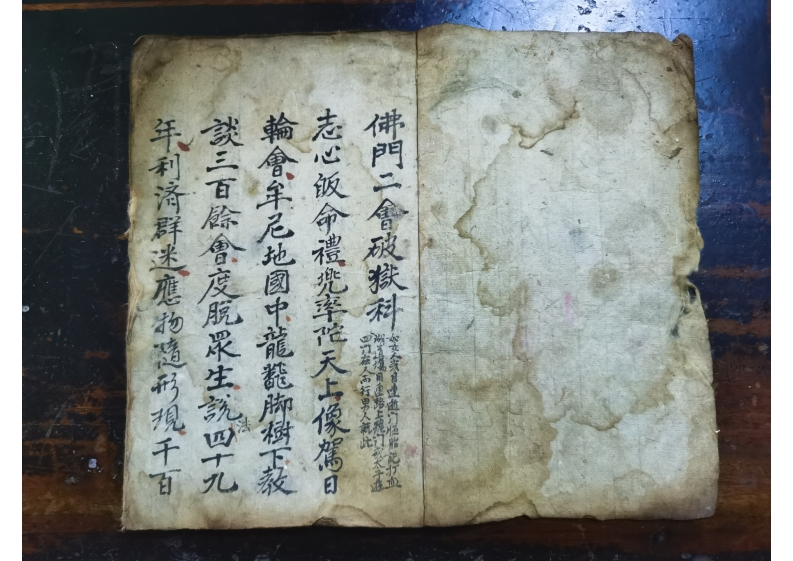 佛門二會破獄科
志心皈命禮兠率陀天上像駕日
輪會牟尼地國中龍𪚥脚樹下教
談三百餘會度脫眾生說法四十九
年利济群迷應物隨形現千百